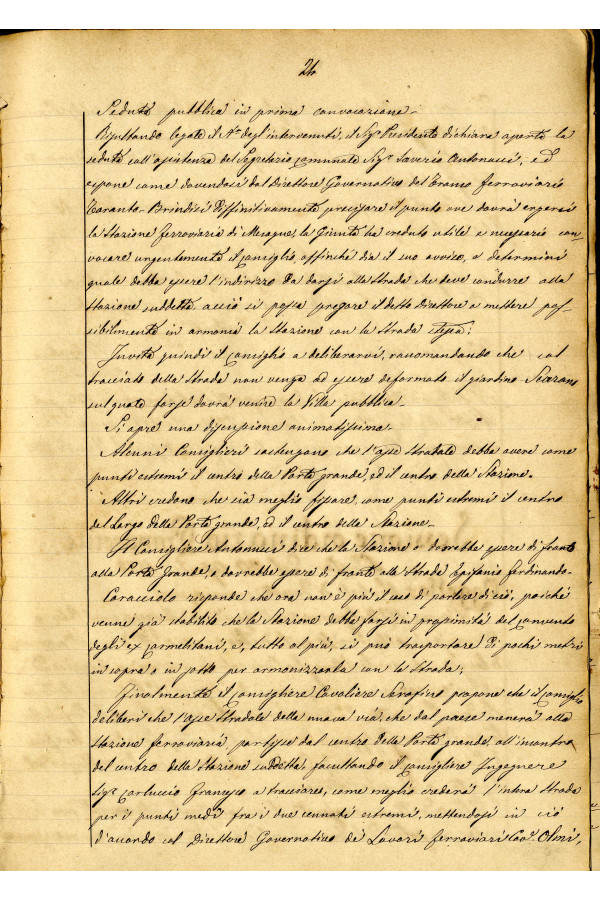 24
Seduta pubblica in prima convocazione.
Risultando legale il N.º degl'intervenuti, il Sig.r Presidente dichiara aperta la
seduta coll'assistenza del Segretario Comunale Sig.r Saverio Antonucci, ed
espone come dovendosi dal Direttore Governativo del Tronco ferroviario
Taranto-Brindisi diffinitivamente precisare il punto ove dovrà ergersi
la Stazione ferroviaria di Mesagne, la Giunta ha creduto utile e necessario con-
vocare urgentemente il Consiglio, affinchè dia il suo avviso, e determini
quale debba essere l'indirizzo da darsi alla strada che deve condurre alla
stazione suddetta, acciò si possa pregare il detto Direttore a mettere pos-
sibilmente in armonia la Stazione con la strada stessa;
Invita quindi il Consiglio a deliberarvi, raccomandando che col
tracciato della strada non venga ad essere deformato il giardino Scazani
sul quale forse dovrà venire la Villa pubblica.
Si apre una discussione animatissima.
Alcuni Consiglieri sostengono che l'asse stradale debba avere come
punti estremi il centro della Porta grande, ed il centro della Stazione.
Altri credono che sia meglio fissare, come punti estremi il centro
del Largo della Porta grande, ed il centro della Stazione.
Il Consigliere Antonucci dice che la Stazione o dovrebbe essere di fronte
alla Porta Grande, o dovrebbe essere di fronte alla Strada Epifanio Ferdinando.
Caracciolo risponde che ora non è più il caso di parlare di ciò, poichè
venne già stabilito che la Stazione debba farsi in prossimità del Convento
degli ex Carmelitani, e, tutto al più, si può trasportare di pochi metri
in sopra o in sotto per armonizzarla con la strada.
Finalmente il Consigliere Cavaliere Serafino propone che il Consiglio
deliberi che l'asse stradale della nuova via, che dal paese menerà alla
stazione ferroviaria, partisse dal centro della Porta grande, all'incontro
del centro della Stazione suddetta, facultando il Consigliere Ingegnere
Sig.r Carluccio Francesco a tracciare, come meglio crederà l'intera strada
per i punti medî fra i due cennati estremi, mettendosi in ciò
d'accordo col Direttore Governativo de' Lavori ferroviari Cav.r Olmi,